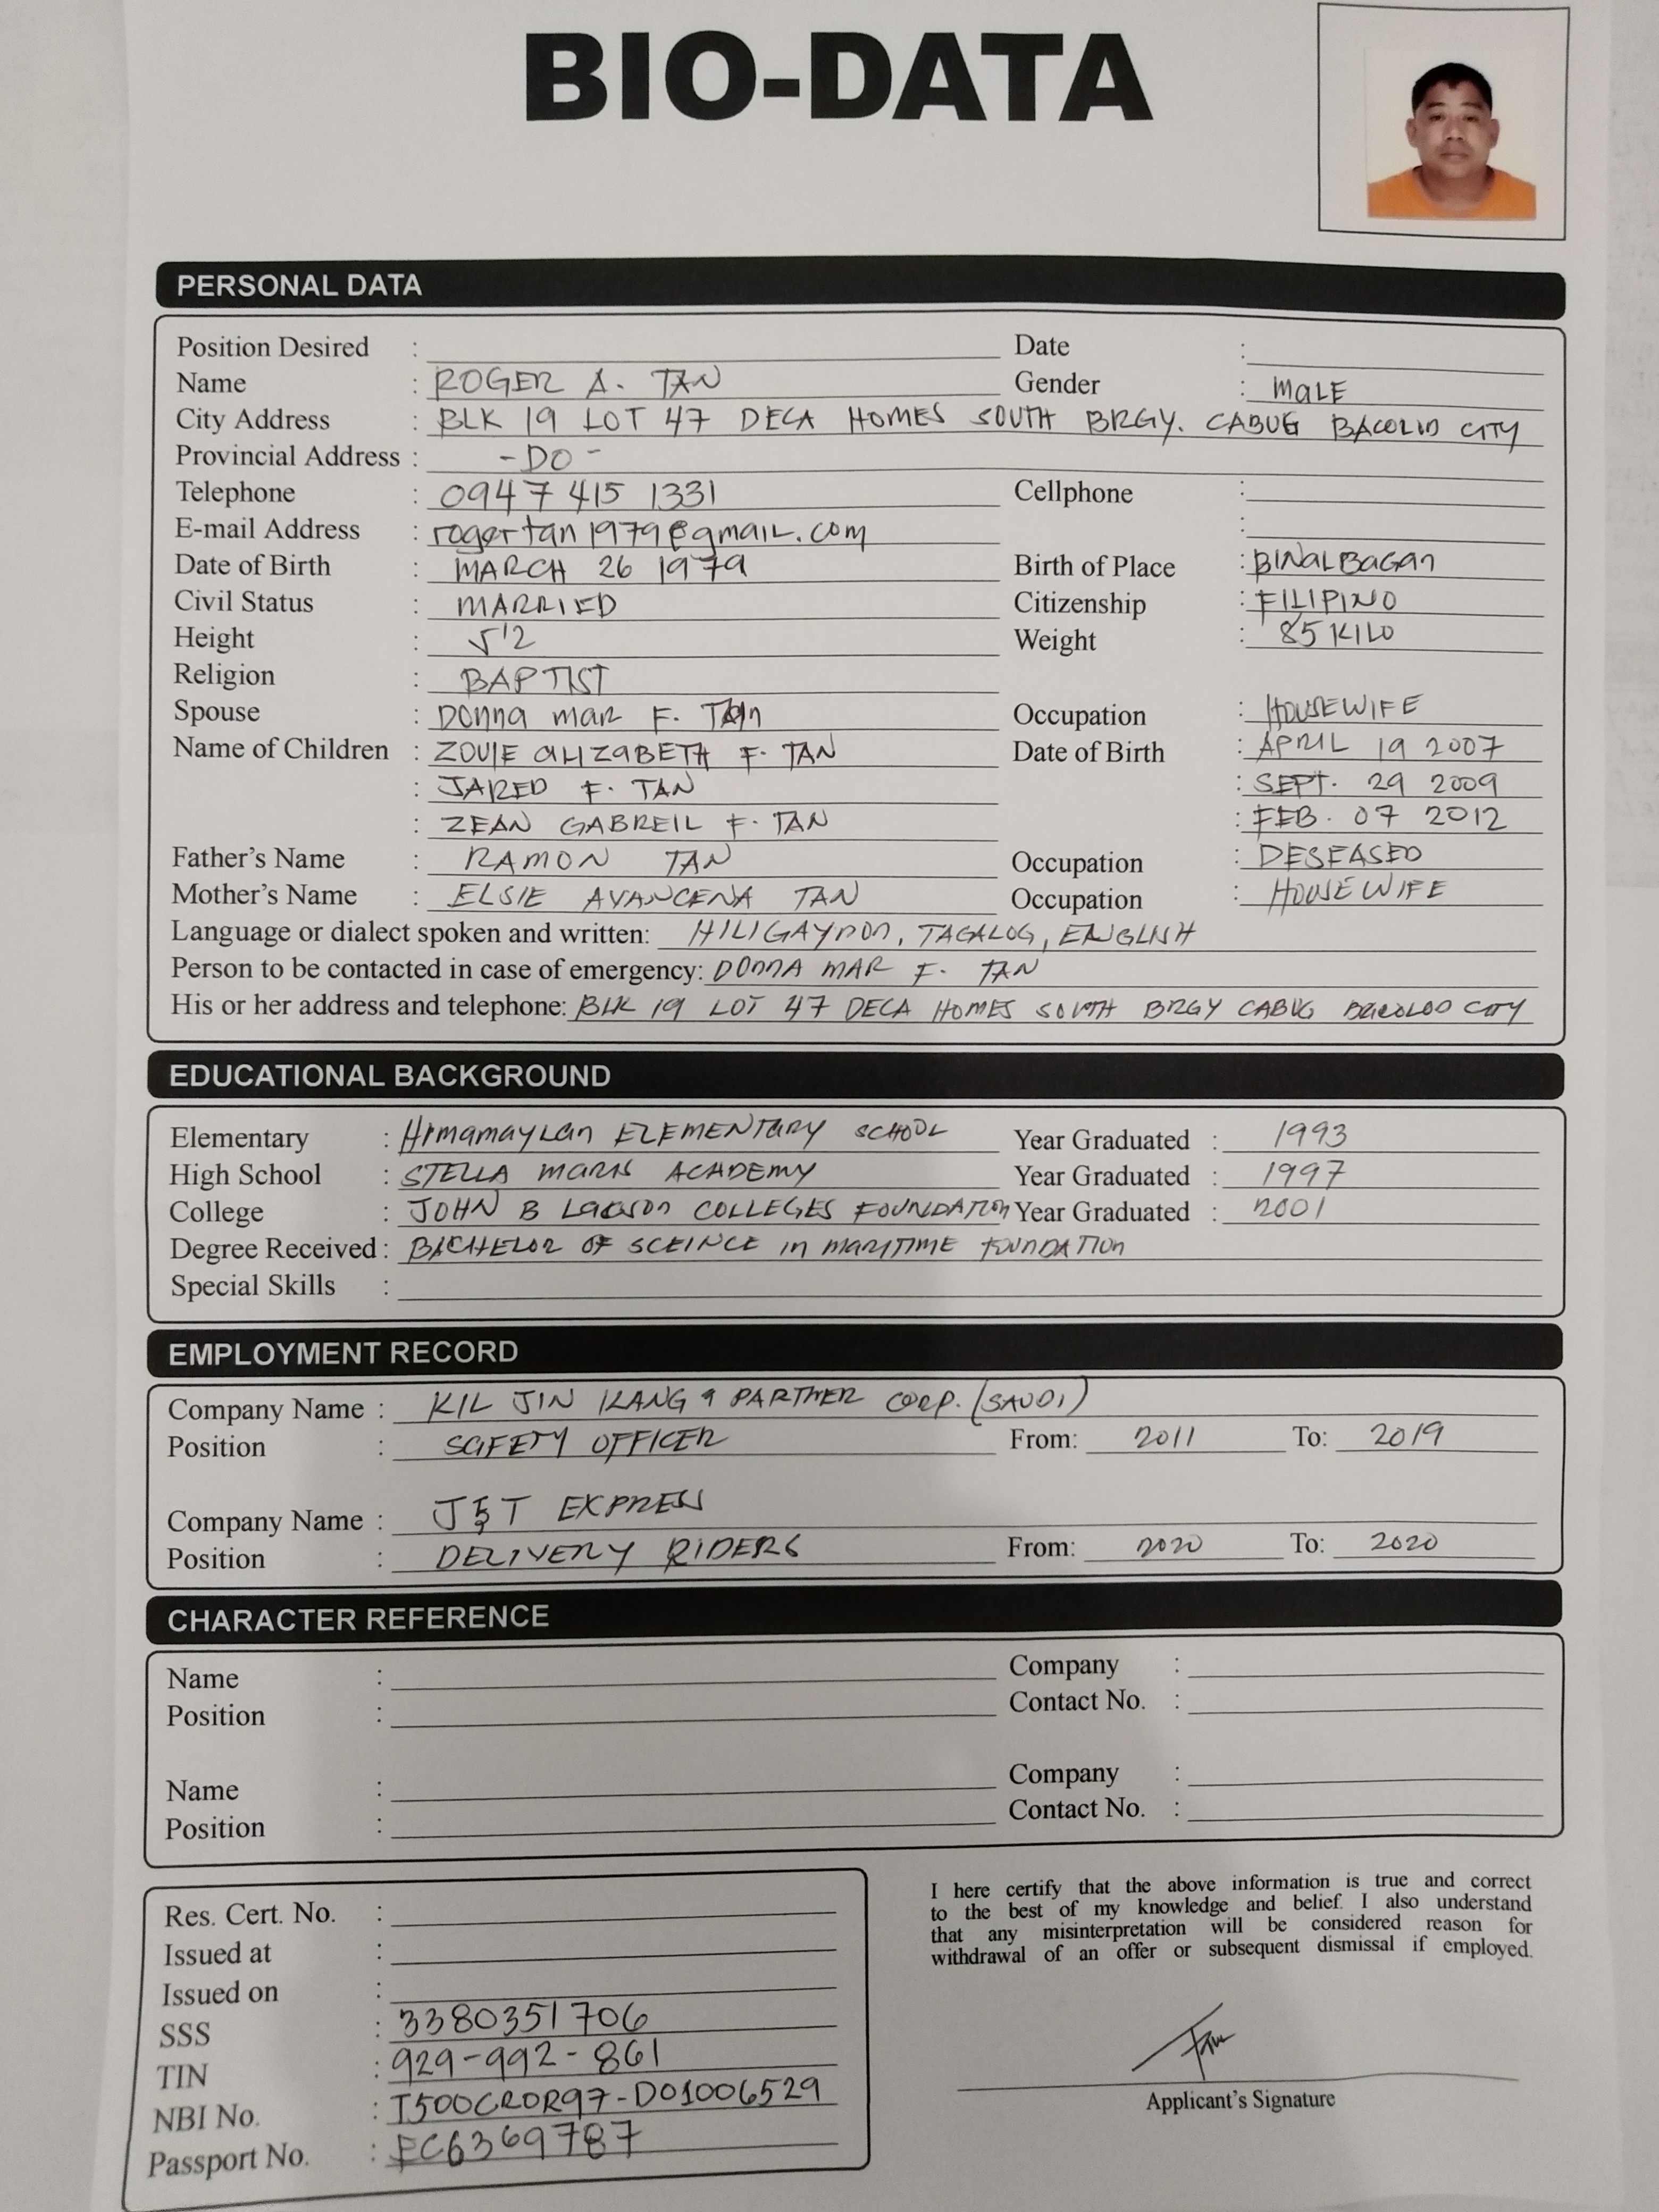 BIO-DATA
PERSONAL DATA
Position Desired : Date :
Name : ROGER A. TAN Gender : MALE
City Address : BLK 19 LOT 47 DECA HOMES SOUTH BRGY. CABUG BACOLOD CITY
Provincial Address : -DO-
Telephone : 0947 415 1331 Cellphone :
E-mail Address : rogertan1979@gmail.com :
Date of Birth : MARCH 26 1979 Birth of Place : BINALBAGAN
Civil Status : MARRIED Citizenship : FILIPINO
Height : 5'2 Weight : 85 KILO
Religion : BAPTIST
Spouse : DONNA MAR F. TAN Occupation : HOUSEWIFE
Name of Children : ZOUIE ALIZABETH F. TAN Date of Birth : APRIL 19 2007
: JARED F. TAN : SEPT. 29 2009
: ZEAN GABREIL F. TAN : FEB. 07 2012
Father's Name : RAMON TAN Occupation : DESEASED
Mother's Name : ELSIE AVANCENA TAN Occupation : HOUSEWIFE
Language or dialect spoken and written: HILIGAYNON, TAGALOG, ENGLISH
Person to be contacted in case of emergency: DONNA MAR F. TAN
His or her address and telephone: BLK 19 LOT 47 DECA HOMES SOUTH BRGY CABUG BACOLOD CITY
EDUCATIONAL BACKGROUND
Elementary : HIMAMAYLAN ELEMENTARY SCHOOL Year Graduated : 1993
High School : STELLA MARIS ACADEMY Year Graduated : 1997
College : JOHN B LACSON COLLEGES FOUNDATION Year Graduated : 2001
Degree Received : BACHELOR OF SCEINCE IN MARITIME FOUNDATION
Special Skills :
EMPLOYMENT RECORD
Company Name : KIL JIN KANG & PARTNER CORP. (SAUDI)
Position : SAFETY OFFICER From: 2011 To: 2019
Company Name : J&T EXPRESS
Position : DELIVERY RIDERS From: 2020 To: 2020
CHARACTER REFERENCE
Name : Company :
Position : Contact No. :
Name : Company :
Position : Contact No. :
Res. Cert. No. :
Issued at :
Issued on :
SSS : 3380351706
TIN : 929-992-861
NBI No. : T500CROR97-D01006529
Passport No. : EC6369787
I here certify that the above information is true and correct
to the best of my knowledge and belief. I also understand
that any misinterpretation will be considered reason for
withdrawal of an offer or subsequent dismissal if employed.
Tan
Applicant's Signature